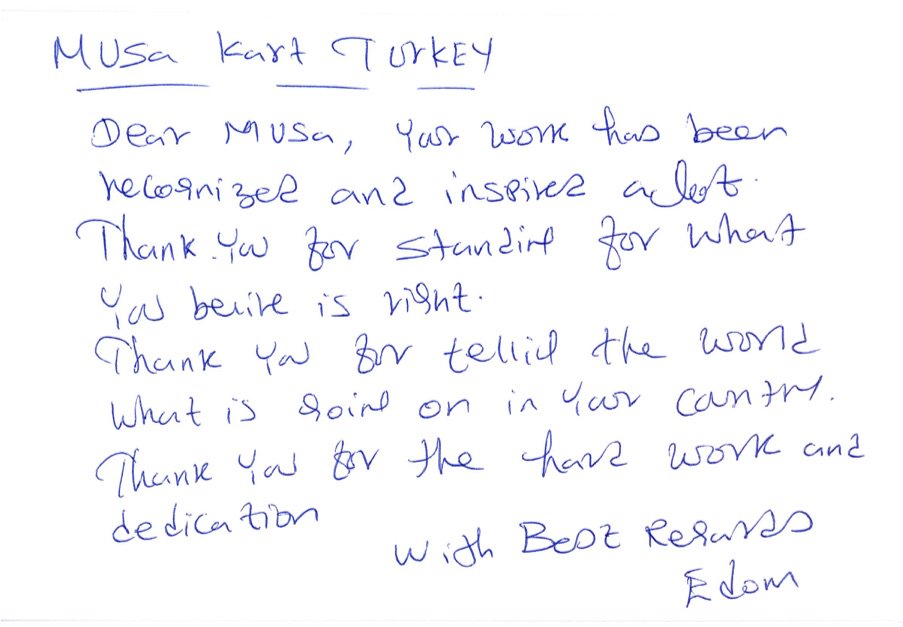 Musa Kart TURKEY
Dear Musa, Your work has been
recognized and inspires a lot.
Thank you for standing for what
you belive is right.
Thank you for telling the world
what is going on in your country.
Thank you for the hard work and
dedication
With Best Regards
Edom